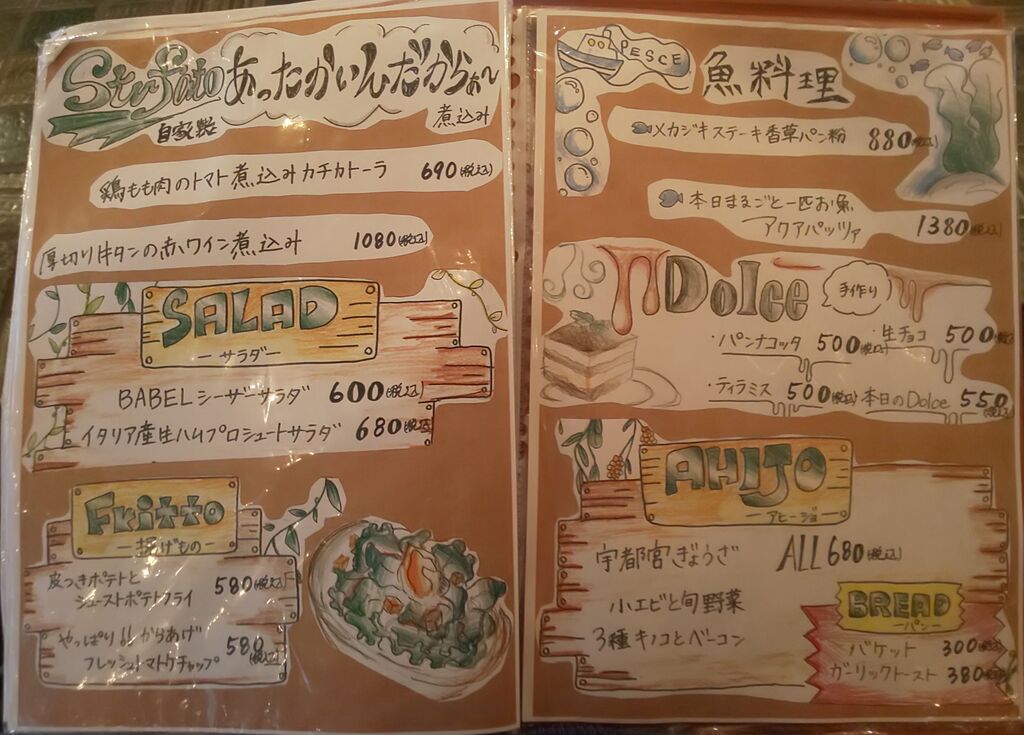 Stufato あったかいんだからぁ〜
自家製
煮込み
鶏もも肉のトマト煮込みカチカトーラ 690(税込)
厚切り牛タンの赤ワイン煮込み 1080(税込)
SALAD
ーサラダー
BABELシーザーサラダ 600(税込)
イタリア産生ハムプロシュートサラダ 680(税込)
Fritto
ー揚げものー
皮つきポテトと
シューストポテトフライ 580(税込)
やっぱり!!からあげ
フレッシュトマトケチャップ 580(税込)
PESCE
魚料理
メカジキステーキ香草パン粉 880(税込)
本日まるごと一匹お魚
アクアパッツァ 1380(税込)
Dolce
手作り
・パンナコッタ 500(税込) ・生チョコ 500(税込)
・ティラミス 500(税込) 本日のDolce 550(税込)
AHIJO
ーアヒージョー
宇都宮ぎょうざ ALL680(税込)
小エビと旬野菜
3種キノコとベーコン
BREAD
ーパンー
バケット 300(税込)
ガーリックトースト 380(税込)